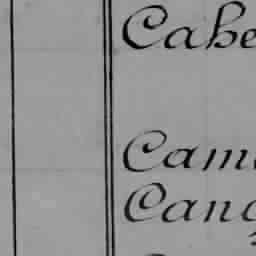 Cabe
Cam
Canc